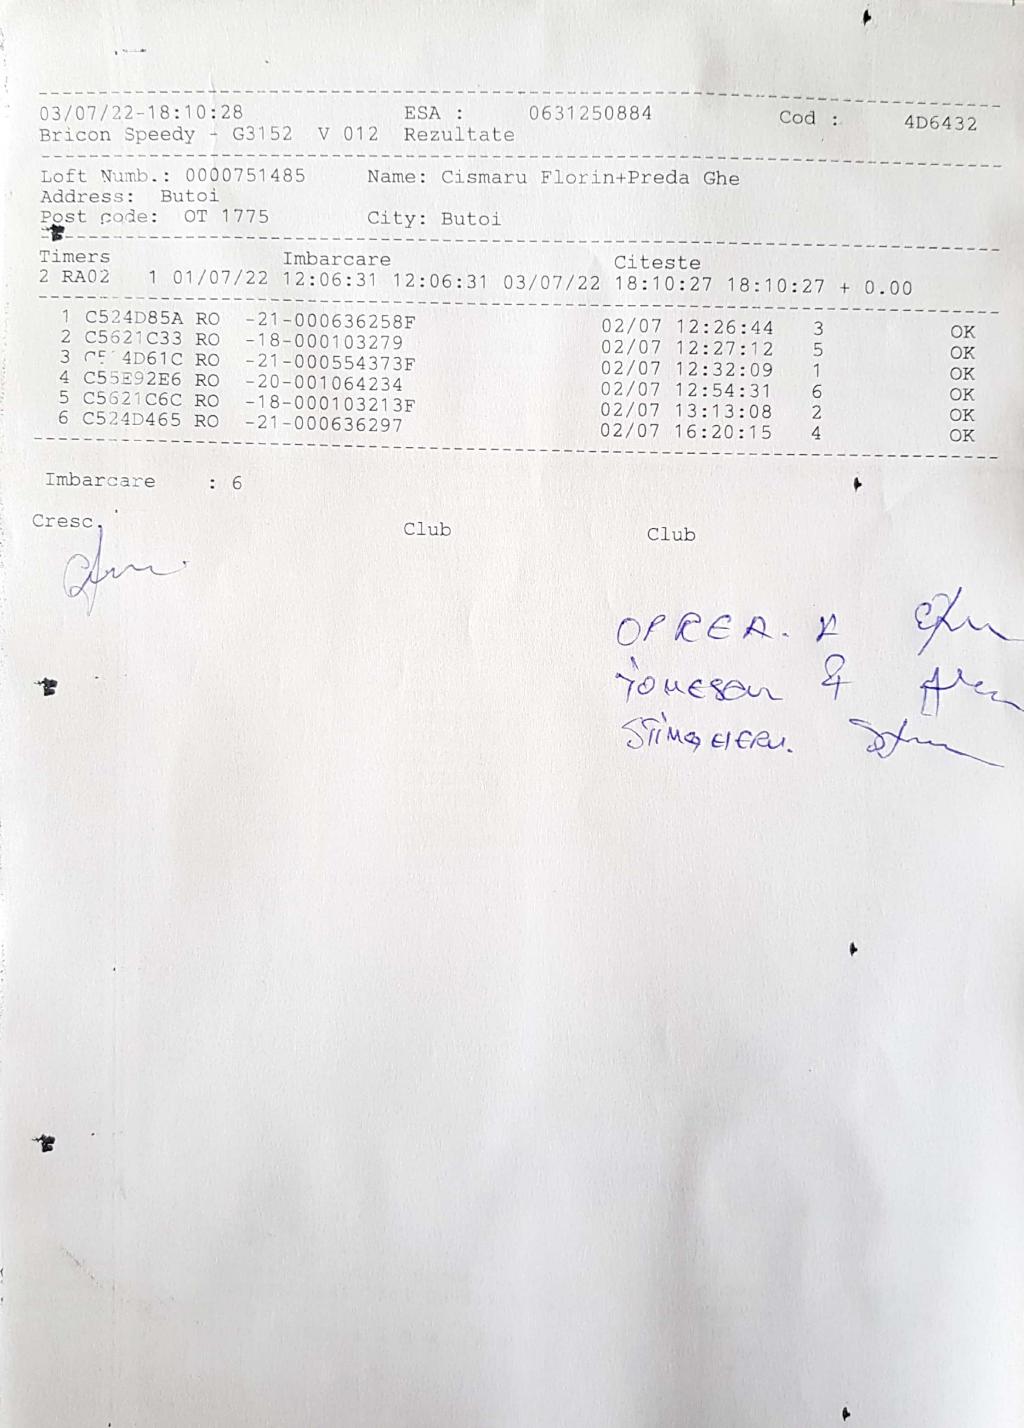 03/07/22-18:10:28 ESA : 0631250884 Cod : 4D6432
Bricon Speedy - G3152 V 012 Rezultate
Loft Numb.: 0000751485 Name: Cismaru Florin+Preda Ghe
Address: Butoi
Post code: OT 1775 City: Butoi
Timers Imbarcare Citeste
2 RA02 1 01/07/22 12:06:31 12:06:31 03/07/22 18:10:27 18:10:27 + 0.00
1 C524D85A RO -21-000636258F 02/07 12:26:44 3 OK
2 C5621C33 RO -18-000103279 02/07 12:27:12 5 OK
3 RO -21-000554373F 02/07 12:32:09 1 OK
4 C55E92E6 RO -20-001064234 02/07 12:54:31 6 OK
5 C5621C6C RO -18-000103213F 02/07 13:13:08 2 OK
6 C524D465 RO -21-000636297 02/07 16:20:15 4 OK
Imbarcare : 6
Cresc. Club Club
OPREA.